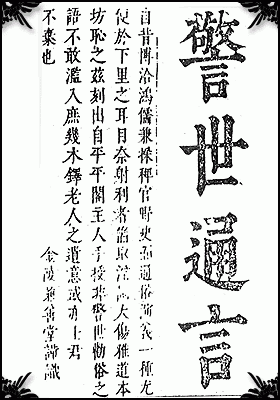 警世通言
自昔博洽鴻儒兼採稗官野史而通俗演義一種尤
便於下里之耳目奈射利者取淫大傷雅道本
坊恥之茲刻出自平平閣主人手授非警世勸俗之
語不敢濫入庶幾木鐸老人之遺意或亦士君
不棄也
金陵兼善堂謹識